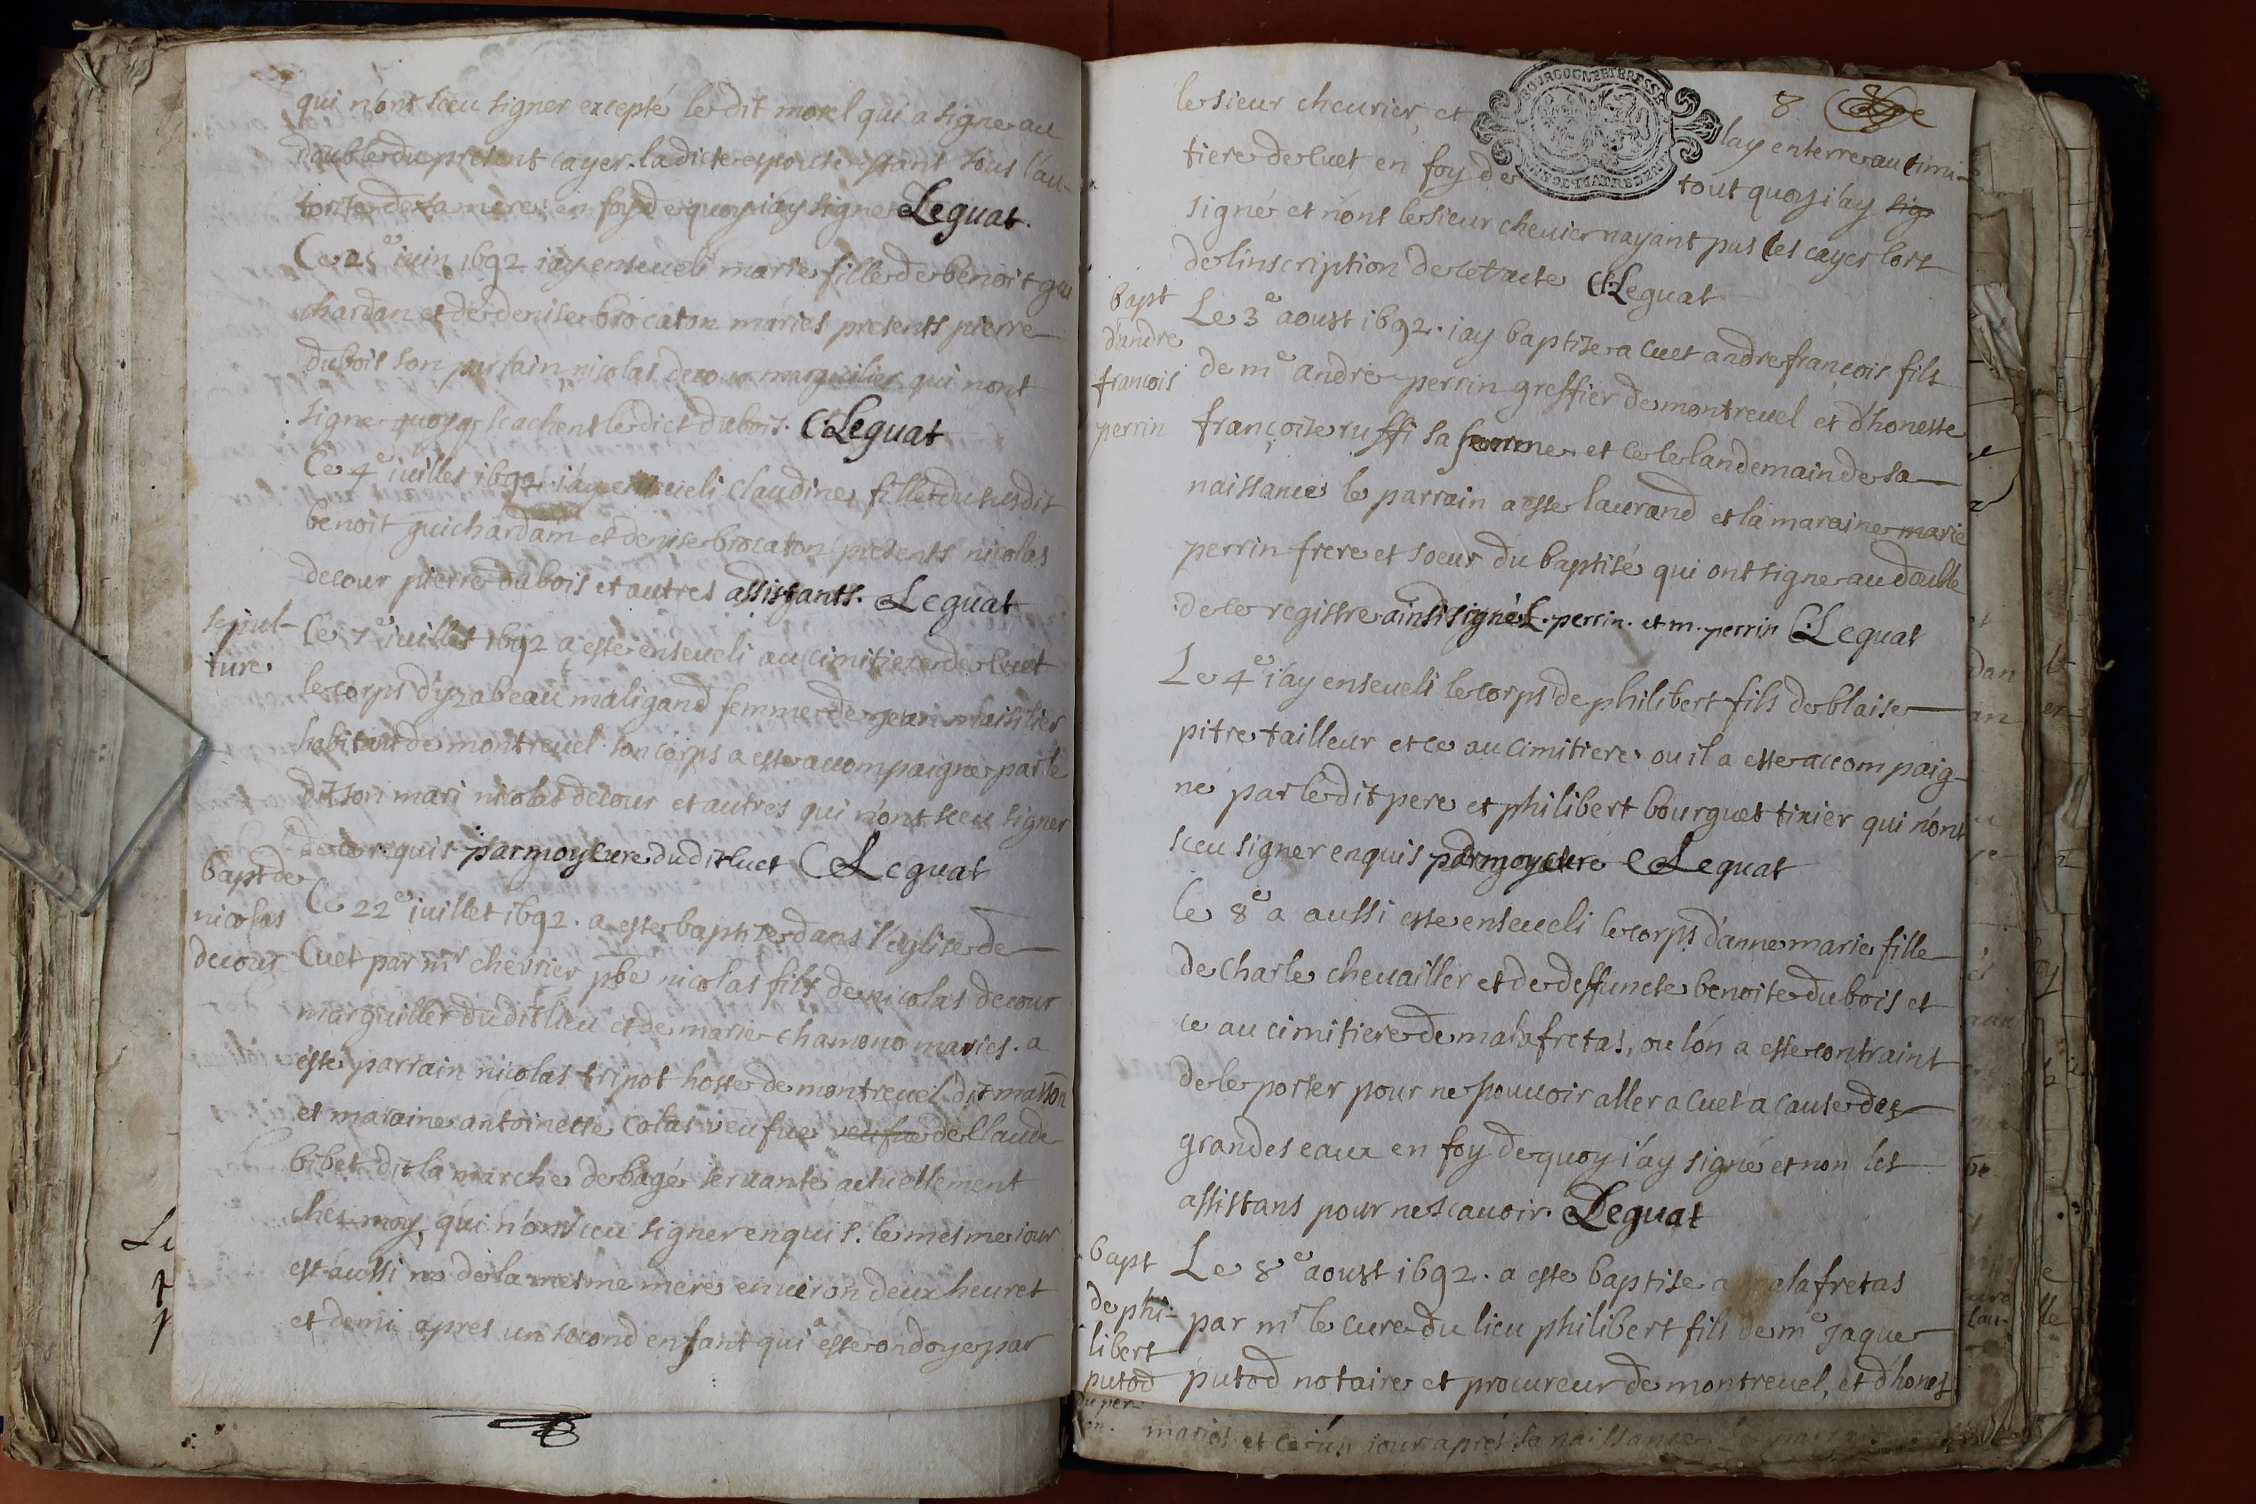 qui n'ont sceu signer excepté ledit morel qui a signe au
double du present cayer. ladicte espouse estant sous l'au-
torite de sa mere. en foy de quoy i'ay signe Leguat.
Ce 25e iuin 1692 i'ay enseueli marie fille de benoit gui
chardan et de denise brocaton maries presents pierre
dubois son parrain nicolas decour marguilier qui n'ont
signe quoy scachent le dict dubois. C. Leguat
Ce 4e iuillet 1692 i'ay enseueli claudine fille du susdit
benoit guichardain et denise brocaton presents nicolas
decour pierre dubois et autres assistants. Leguat
sepul-
ture
Ce 7e iuillet 1692 a esté enseueli au cimitiere de Cuet
le corps d'yzabeau maligand femme de jean
habitant de montreuel son corps a esté accompaigné par le
dit son mari nicolas decour et autres qui n'ont sceu signer
de ce requis par moy curé dudit Cuet C Leguat
bapt de
nicolas
decour
Ce 22e iuillet 1692. a esté baptisé dans l'eglise de
Cuet par mr chevrier pbe nicolas fils de nicolas decour
marguillier dudit lieu et de marie chamono maries. a
esté parrain nicolas tripot hoste de montreuel dit masson
et maraine antoinette Colas veufue veufue de Claude
bibet dit la marche de bagé seruante actuellement
chez moy, qui n'ont sceu signer enquis. le mesme iour
est aussi né de la mesme mere enuiron deux heures
et demi apres un second enfant qui a esté ondoyé par
8
le sieur cheurier, et lay enterré au cimi-
tiere de Cuet en foy de tout quoy i'ay sig
signé et non le sieur cheurier nayant pas les cayer lors
de l'inscription de cet acte C. Leguat
bapt
d'andre
francois
perrin
Le 3e aoust 1692. i'ay baptisé a Cuet andre françois fils
de me andré perrin greffier de montreuel et d'honeste
françoise ruffi sa femme et ce le landemain de sa
naissance le parrain a esté laurand et la maraine marie
perrin frere et soeur du baptisé qui ont signe au double
de ce registre ainsi signé L. perrin. et m. perrin C. Leguat
Le 4e i'ay enseueli le corps de philibert fils de blaise
pitre tailleur et ce au cimitiere ou il a esté accompaig-
né par ledit pere et philibert bourguet tixier qui n'ont
sceu signer enquis par moy curé C Leguat
Le 8e a aussi esté enseueli le corps d'anne marie fille
de Charle cheuailler et de deffuncte benoite dubois et
ce au cimitiere de malafretas, ou l'on a esté contraint
de le porter pour ne pouuoir aller a Cuet a cause des
grandes eaux en foy de quoy i'ay signé et non les
assistans pour ne scauoir. Leguat
bapt
de phi-
libert
putod
Le 8e aoust 1692. a esté baptisé a malafretas
par mr le curé du lieu philibert fils de me Jaque
putod notaire et procureur de montreuel, et d'hones
maries et ce un iour apres sa naissance